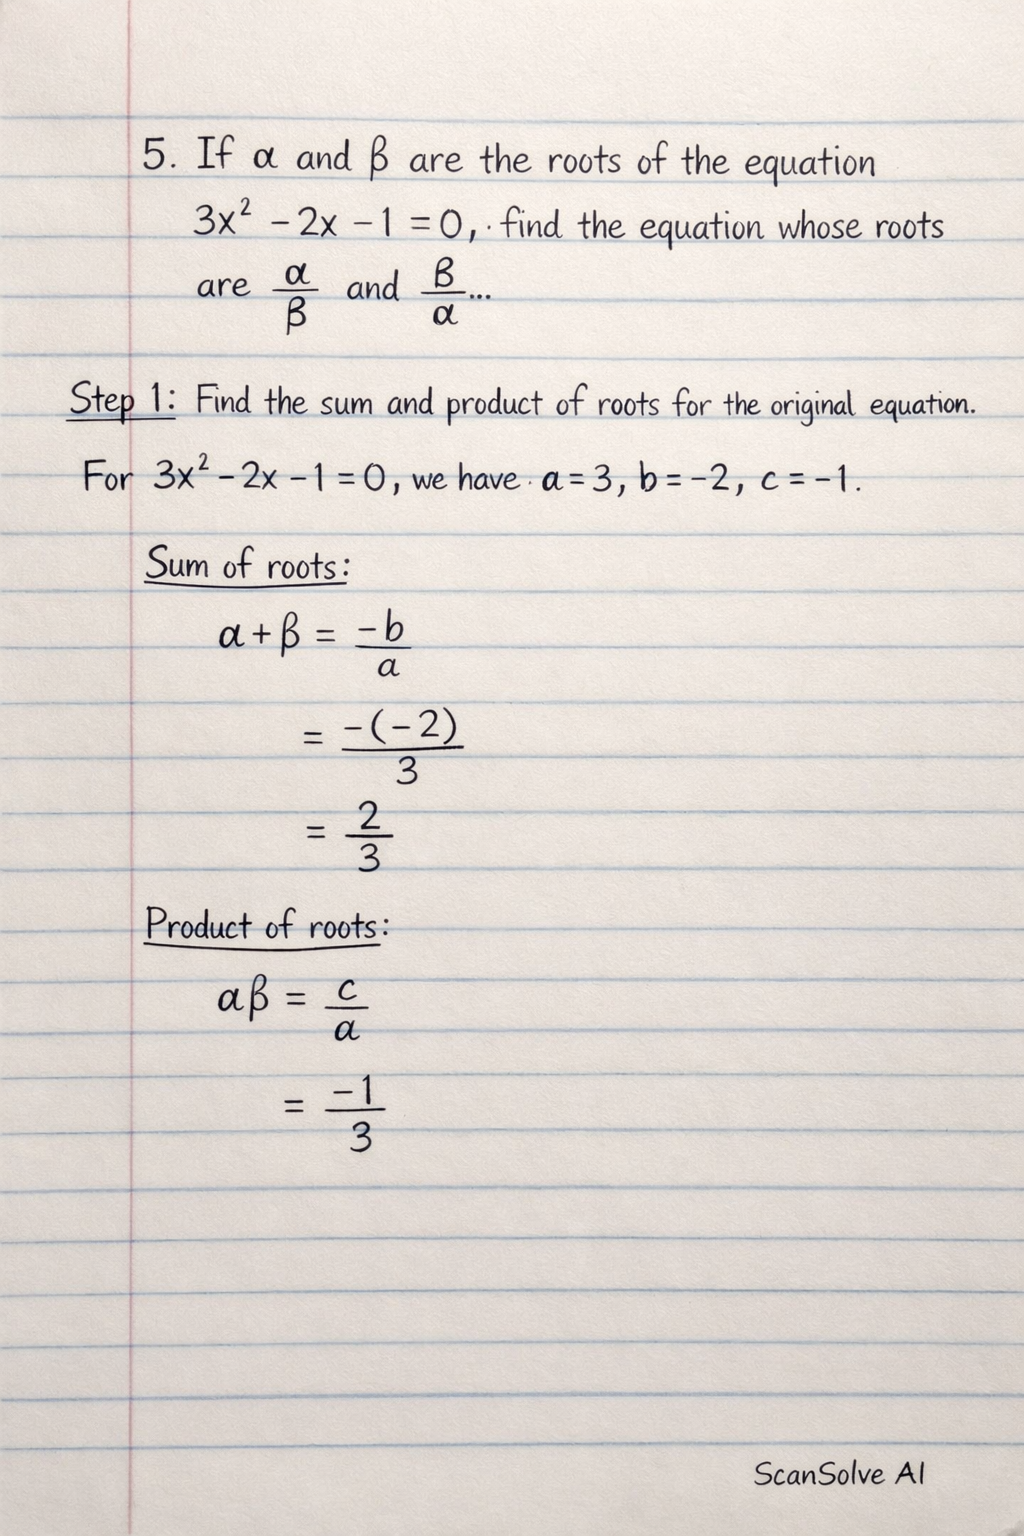 5. If α and β are the roots of the equation
3x² - 2x - 1 = 0, · find the equation whose roots
are α/β and β/α...
Step 1: Find the sum and product of roots for the original equation.
For 3x² - 2x - 1 = 0, we have · a = 3, b = -2, c = -1.
Sum of roots:
α + β = -b/a
= -(-2)/3
= 2/3
Product of roots:
αβ = c/a
= -1/3
ScanSolve AI